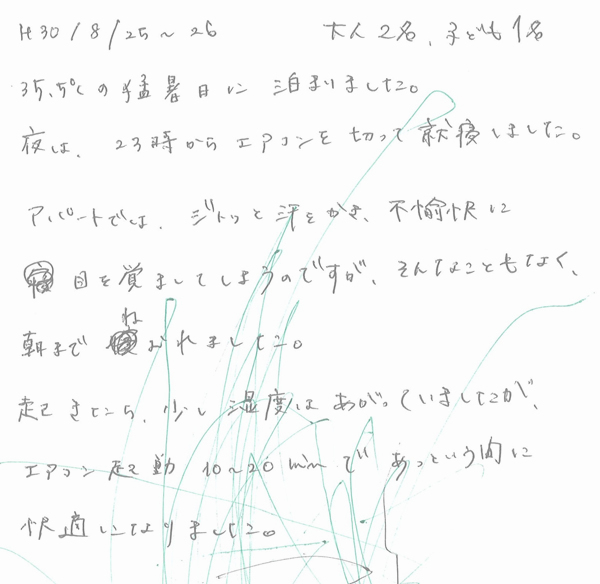 H30/8/25~26 大人2名、子ども1名
35.5℃の猛暑日に泊まりました。
夜は、23時からエアコンを切って就寝しました。
アパートでは、ジトッと汗をかき、不愉快に
目を覚ましてしまうのですが、そんなこともなく、
朝までねむれました。
起きたら、少し湿度はあがっていましたが、
エアコン起動 10~20minであっという間に
快適になりました。